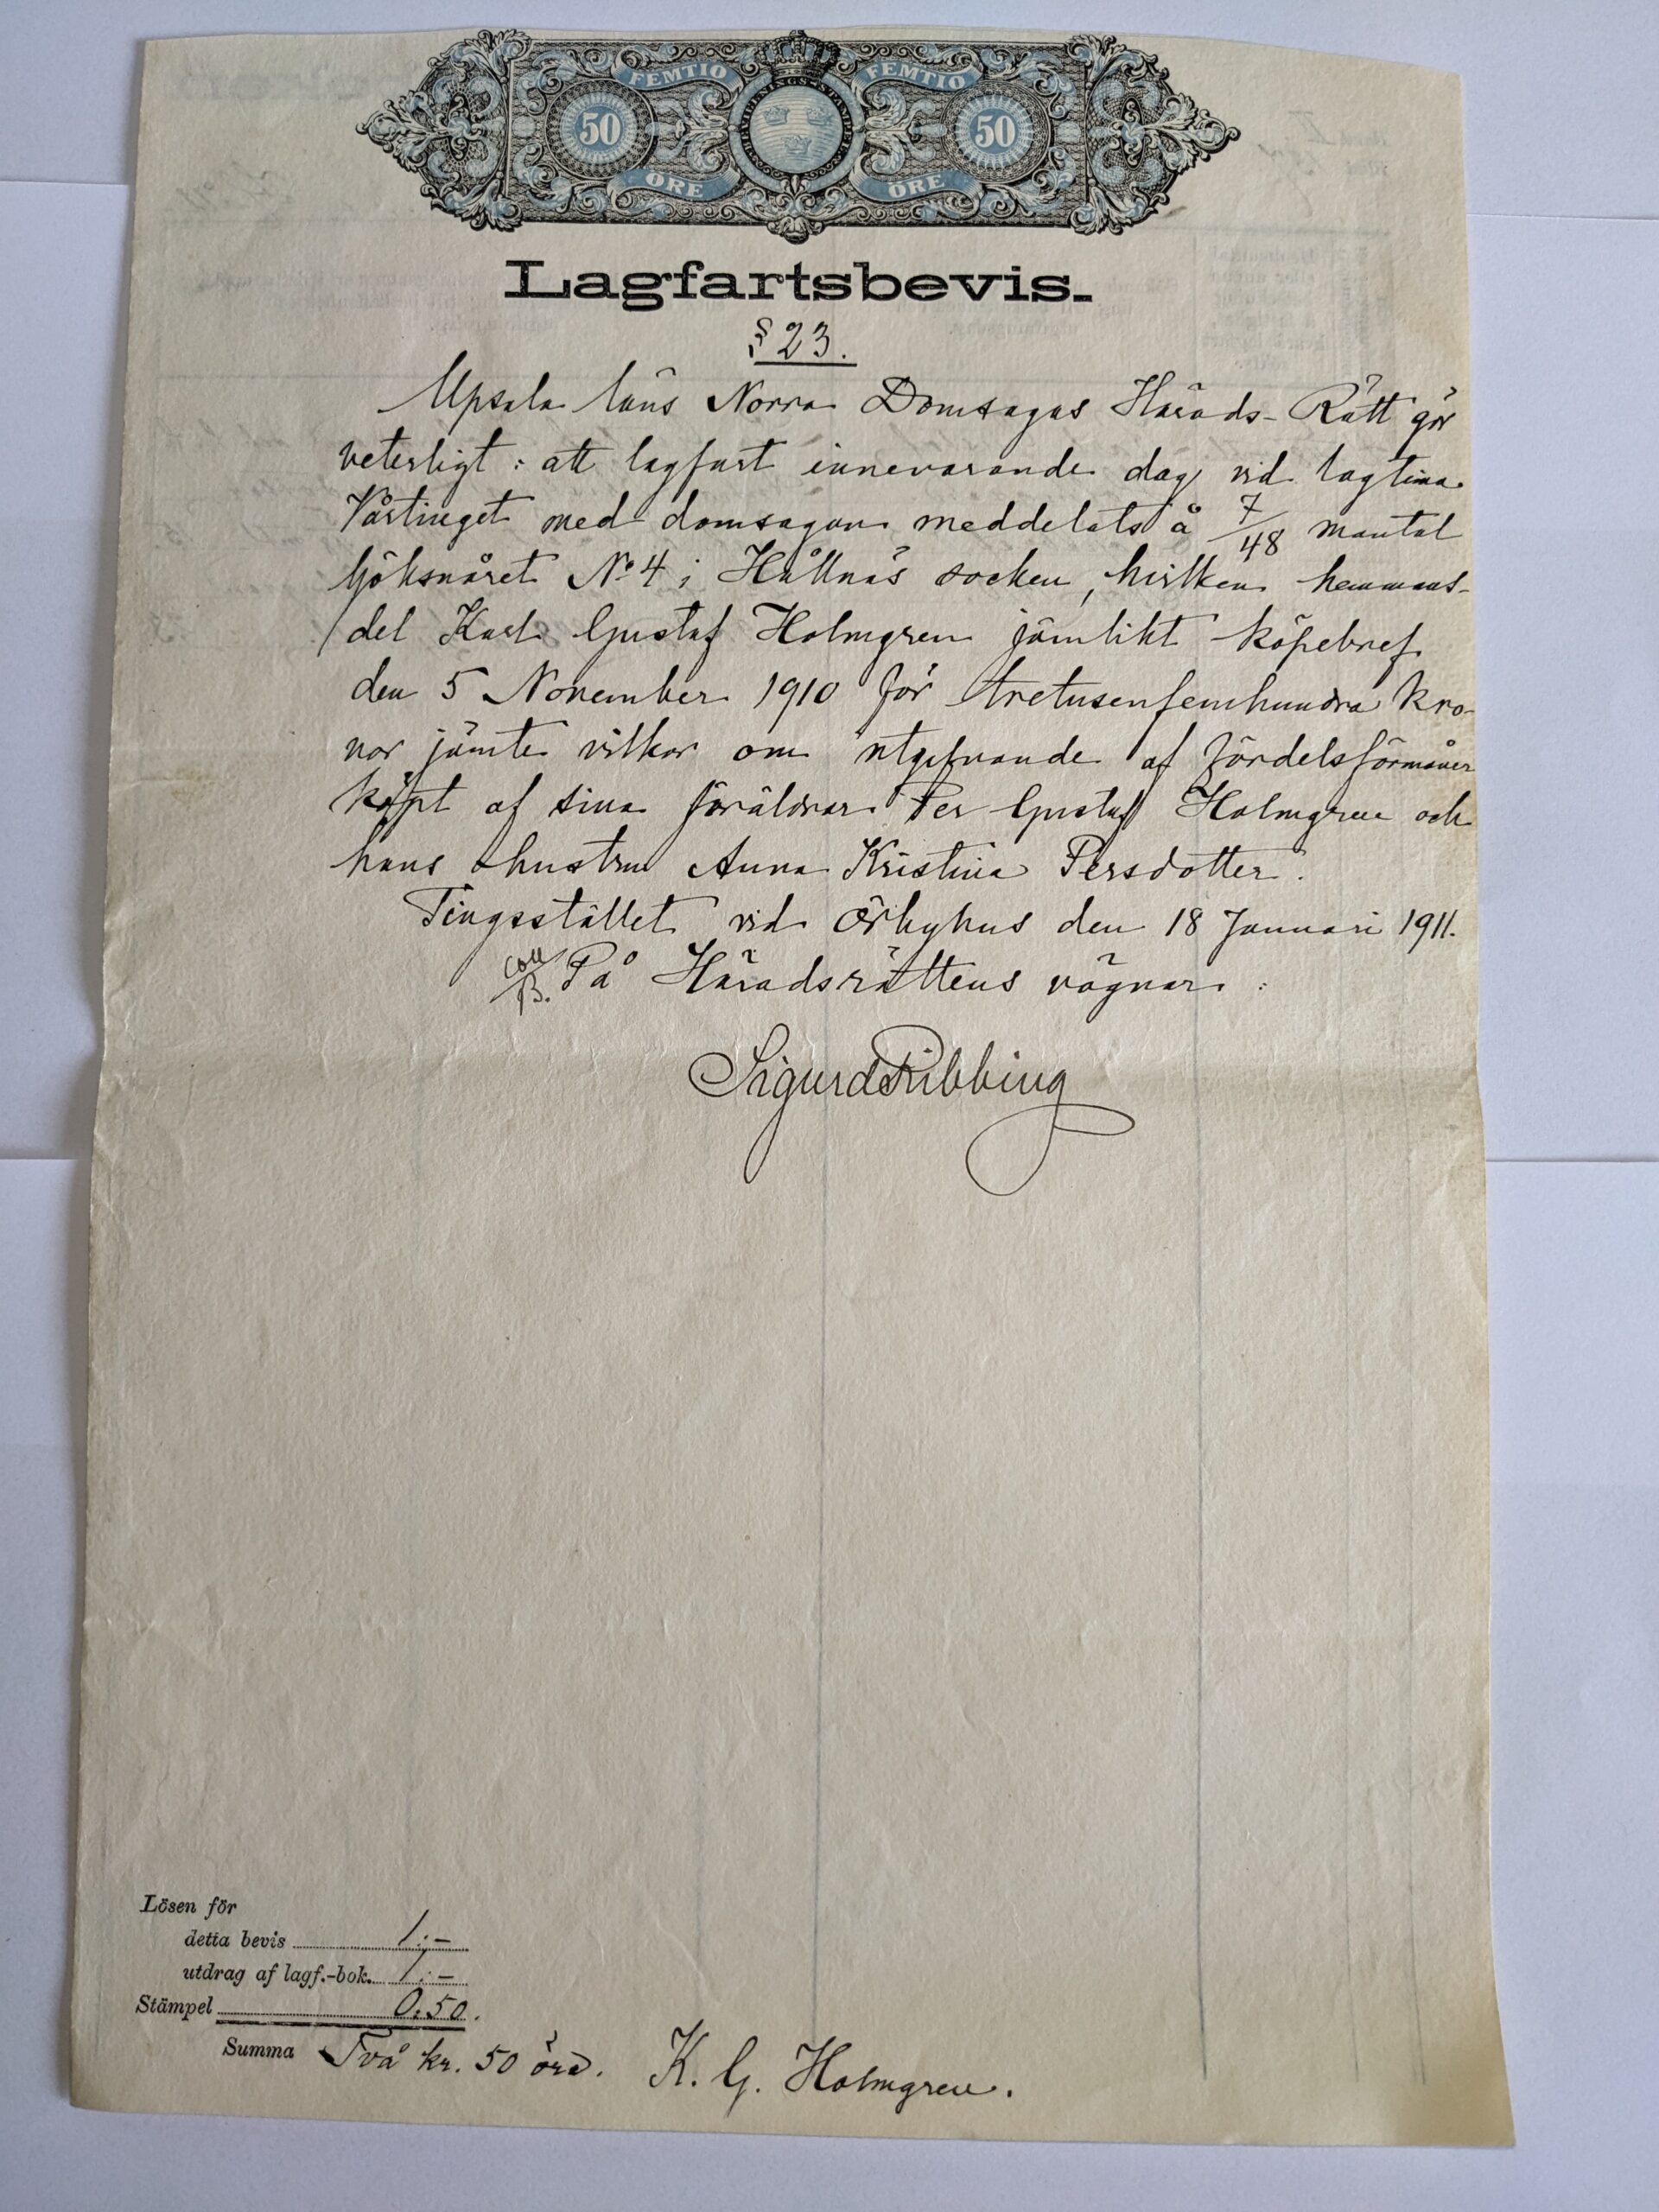 FEMTIO FEMTIO
50 BEVILLNINGS STÄMPEL 50
ÖRE ÖRE
Lagfartsbevis.
§ 23.
Upsala läns Norra Domsagas Härads-Rätt gör
veterligt: att lagfart innevarande dag vid lagtima
Vårtinget med domsagan meddelats å 7/48 mantal
Göksnåret No 4 i Hållnäs socken, hvilken hemmans-
del Karl Gustaf Holmgren jämlikt köpebref
den 5 November 1910 för tretusenfemhundra kro-
nor jämte vilkor om utgifvande af fördelsförmåner
köpt af sina föräldrar Per Gustaf Holmgren och
hans hustru Anna Kristina Persdotter.
Tingsstället vid Örbyhus den 18 Januari 1911.
Coll
B. På Häradsrättens vägnar:
Sigurd Ribbing
Lösen för
detta bevis 1:-
utdrag af lagf.-bok. 1:-
Stämpel 0:50.
Summa Två kr. 50 öre. K. G. Holmgren.